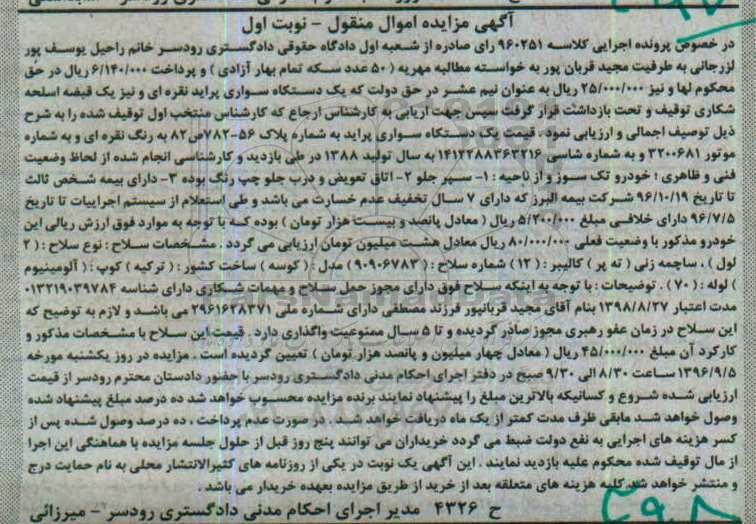 آگهی مزایده اموال منقول - نوبت اول
در خصوص پرونده اجرایی کلاسه ۹۶۰۲۵۱ رای صادره از شعبه اول دادگاه حقوقی دادگستری رودسر خانم راحیل یوسف پور
لزرجانی به طرفیت مجید قربان پور به خواسته مطالبه مهریه (۵۰ عدد سکه تمام بهار آزادی) و پرداخت ۶/۱۴۰/۰۰۰ ریال در حق
محکوم لها و نیز ۲۵/۰۰۰/۰۰۰ ریال به عنوان نیم عشر در حق دولت که یک دستگاه سواری پراید نقره ای و نیز یک قبضه اسلحه
شکاری توقیف و تحت بازداشت قرار گرفت سپس جهت اریابی به کارشناس ارجاع که کارشناس منتخب اول توقیف شده را به شرح
ذیل توصیف اجمالی و ارزیابی نمود. قیمت یک دستگاه سواری پراید به شماره پلاک ۵۶-۷۸۲ص۸۲ به رنگ نقره ای و به شماره
موتور ۳۲۰۰۶۸۱ و به شماره شاسی ۱۴۱۲۲۸۸۳۶۳۲۱۶ به سال تولید ۱۳۸۸ در طی بازدید و کارشناسی انجام شده از لحاظ وضعیت
فنی و ظاهری ؛ خودرو تک سوز و از ناحیه : ۱- سپر جلو ۲- اتاق تعویض و درب جلو چپ رنگ بوده ۳- دارای بیمه شخص ثالث
تا تاریخ ۹۶/۱۰/۱۹ شرکت بیمه البرز که دارای ۷ سال تخفیف عدم خسارت می باشد و طی استعلام از سیستم اجراییات تا تاریخ
۹۶/۷/۵ دارای خلافی مبلغ ۵/۲۰۰/۰۰۰ ریال (معادل پانصد و بیست هزار تومان) بوده که با توجه به موارد فوق ارزش ریالی این
خودرو مذکور با وضعیت فعلی ۸۰/۰۰۰/۰۰۰ ریال معادل هشت میلیون تومان ارزیابی می گردد. مشخصات سلاح : نوع سلاح : (۲
لول)، ساچمه زنی (ته پر) کالیبر : (۱۲) شماره سلاح : (۹۰۹۰۶۷۸۳) مدل : (کوسه) ساخت کشور : (ترکیه) کوپ : (آلومینیوم
) لوله : (۷۰). توضیحات : با توجه به اینکه سلاح فوق دارای مجوز حمل سلاح و مهمات شکاری دارای شناسه ۰۱۳۲۱۹۰۳۹۷۸۴
مدت اعتبار ۱۳۹۸/۸/۲۷ بنام آقای مجید قربانپور فرزند مصطفی دارای شماره ملی ۲۹۶۱۶۲۸۳۷۱ می باشد و لازم به توضیح که
این سلاح در زمان عفو رهبری مجوز صادر گردیده و تا ۵ سال ممنوعیت واگذاری دارد. قیمت این سلاح با مشخصات مذکور و
کارکرد آن مبلغ ۴۵/۰۰۰/۰۰۰ ریال (معادل چهار میلیون و پانصد هزار تومان) تعیین گردیده است. مزایده در روز یکشنبه مورخه
۱۳۹۶/۹/۵ ساعت ۸/۳۰ الی ۹/۳۰ صبح در دفتر اجرای احکام مدنی دادگستری رودسر با حضور دادستان محترم رودسر از قیمت
ارزیابی شده شروع و کسانیکه بالاترین مبلغ را پیشنهاد نمایند برنده مزایده محسوب خواهد شد ده درصد مبلغ پیشنهاد شده
وصول خواهد شد مابقی ظرف مدت کمتر از یک ماه دریافت خواهد شد. در صورت عدم پرداخت، ده درصد وصول شده پس از
کسر هزینه های اجرایی به نفع دولت ضبط می گردد خریداران می توانند پنج روز قبل از حلول جلسه مزایده با هماهنگی این اجرا
از مال توقیف شده محکوم علیه بازدید نمایند. این آگهی یک نوبت در یکی از روزنامه های کثیرالانتشار محلی به نام حمایت درج
و منتشر خواهد شد کلیه هزینه های متعلقه بعد از خرید از طریق مزایده بعهده خریدار می باشد.
ح ۴۳۲۶ مدیر اجرای احکام مدنی دادگستری رودسر - میرزائی